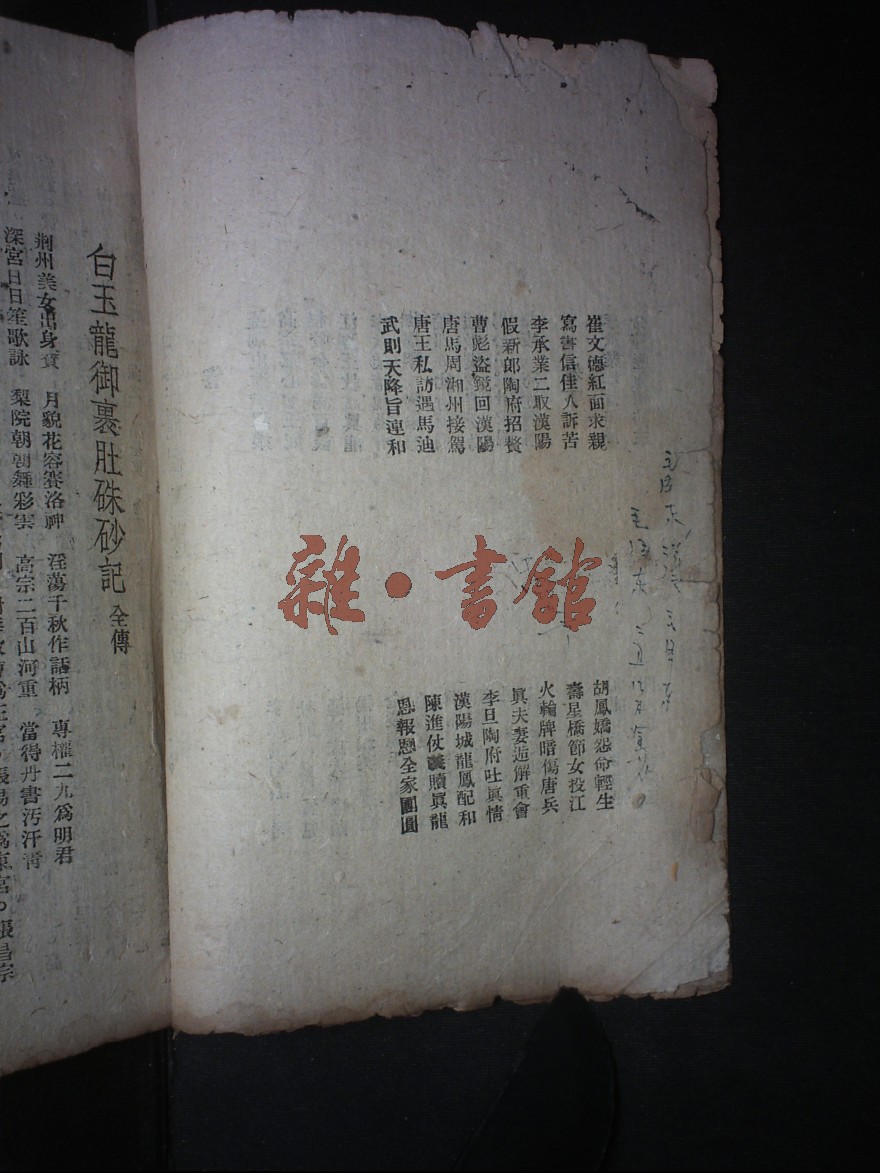 崔文德紅面求親
寫書信佳人訴苦
李承業二取漢陽
假新郎陶府招贅
曹彪盜鏡回漢陽
唐馬周湘州接駕
唐王私訪遇馬迪
武則天降旨連和
胡鳳嬌怨命輕生
壽星橋節女投江
火輪牌暗傷唐兵
眞夫妻逅解重會
李旦陶府吐眞情
漢陽城龍鳳配和
陳進仗義贖眞龍
恩報恩全家團圓
雜·書館
白玉龍御裹肚硃砂記 全傳
荆州美女出身貧 月貌花容賽洛神 淫蕩千秋作話柄 專權二九爲明君
深宮日日笙歌詠 梨院朝朝舞彩雲 高宗二百山河重 當得丹書汚汗靑